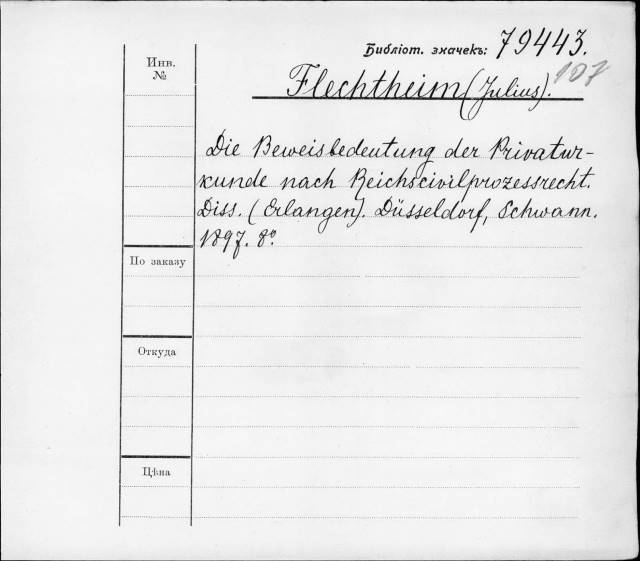 Библіот. значекъ: 79443.
107
Инв.
№
Flechtheim (Julius).
Die Beweisbedeutung der Privatur-
kunde nach Reichscivilprozessrecht.
Diss. (Erlangen). Düsseldorf, Schwann.
1897. 8º.
По заказу
Откуда
Цѣна